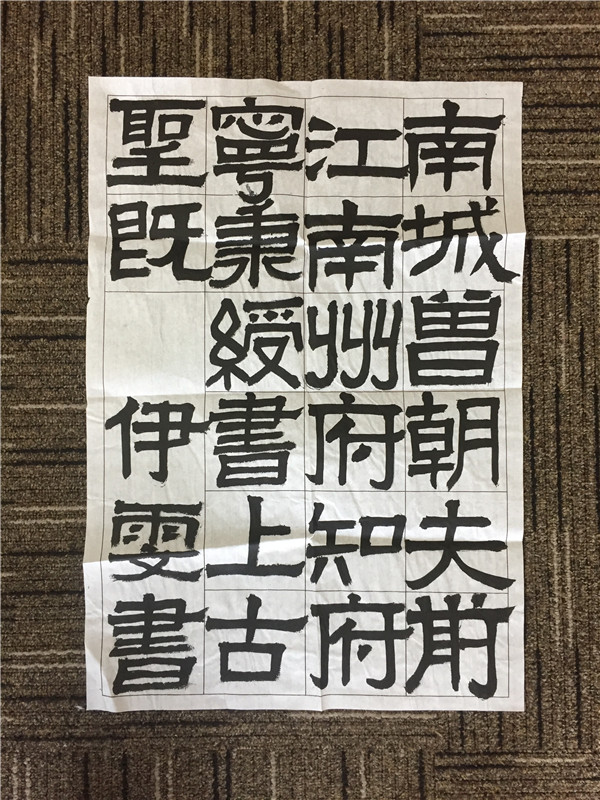 南城曾朝夫前
江南州府知府
寧秉綬書上古
聖既 伊雯書